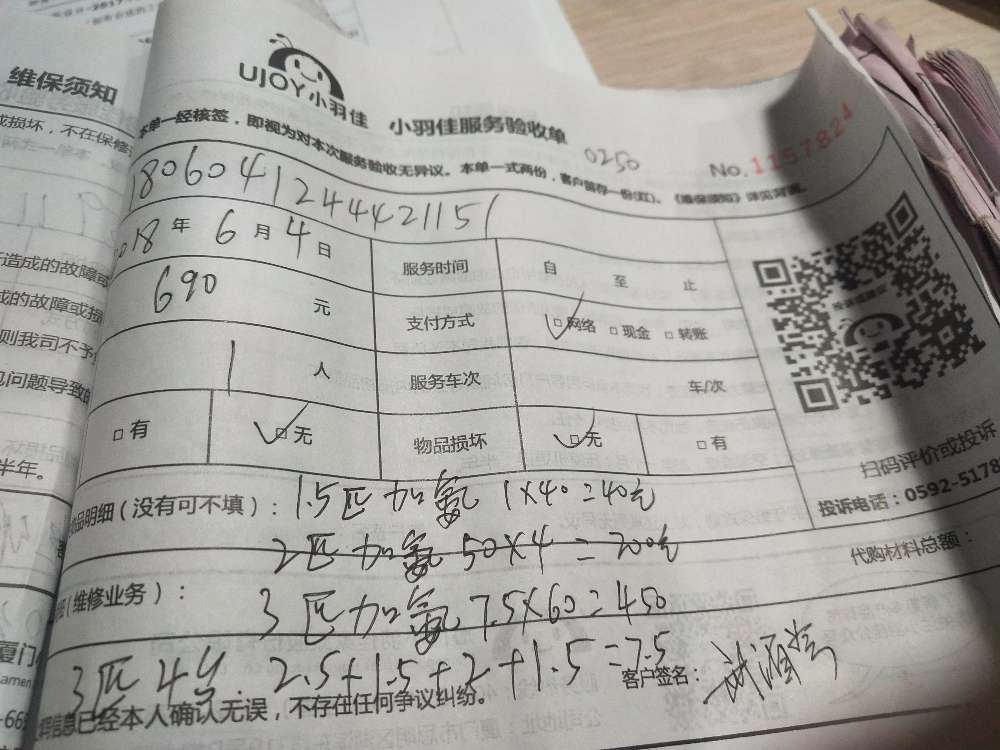 维保须知
UJOY小羽佳
小羽佳服务验收单
0250
No.1157824
本单一经核签，即视为对本次服务验收无异议。本单一式两份，客户留存一份(红)。《维保须知》详见背面。
1806041244421151
2018年6月4日 服务时间 自 至 止
690元 支付方式 □网络 □现金 □转账
1人 服务车次 车/次
□有 □无 物品损坏 □无 □有
扫码评价或投诉
投诉电话：0592-5178
品明细（没有可不填）：1.5匹加氟 1×40=40元
2匹加氟 50×4=200元
代购材料总额：
（维修业务）：
3匹加氟 7.5×60=450
3匹4台 2.5+1.5+2+1.5=7.5
客户签名：
信息已经本人确认无误，不存在任何争议纠纷。
损坏，不在保修
造成的故障或
成的故障或损
则我司不予
问题导致的
半年。